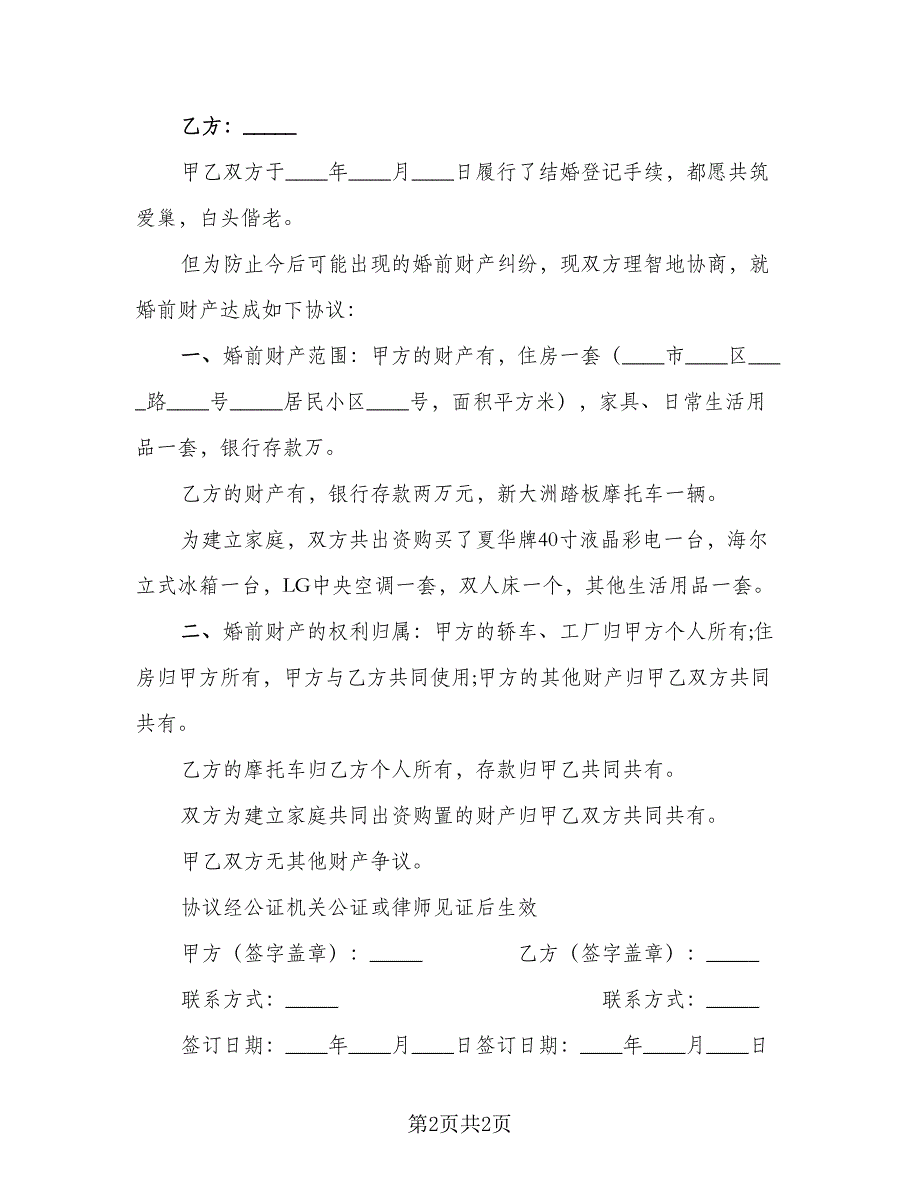 乙方：_____
甲乙双方于____年____月____日履行了结婚登记手续，都愿共筑
爱巢，白头偕老。
但为防止今后可能出现的婚前财产纠纷，现双方理智地协商，就
婚前财产达成如下协议：
一、婚前财产范围：甲方的财产有，住房一套（____市____区___
_路____号_____居民小区____号，面积平方米），家具、日常生活用
品一套，银行存款万。
乙方的财产有，银行存款两万元，新大洲踏板摩托车一辆。
为建立家庭，双方共出资购买了夏华牌40寸液晶彩电一台，海尔
立式冰箱一台，LG中央空调一套，双人床一个，其他生活用品一套。
二、婚前财产的权利归属：甲方的轿车、工厂归甲方个人所有;住
房归甲方所有，甲方与乙方共同使用;甲方的其他财产归甲乙双方共同
共有。
乙方的摩托车归乙方个人所有，存款归甲乙共同共有。
双方为建立家庭共同出资购置的财产归甲乙双方共同共有。
甲乙双方无其他财产争议。
协议经公证机关公证或律师见证后生效
甲方（签字盖章）：_____ 乙方（签字盖章）：_____
联系方式：_____ 联系方式：_____
签订日期：____年____月____日签订日期：____年____月____日
第2页共2页